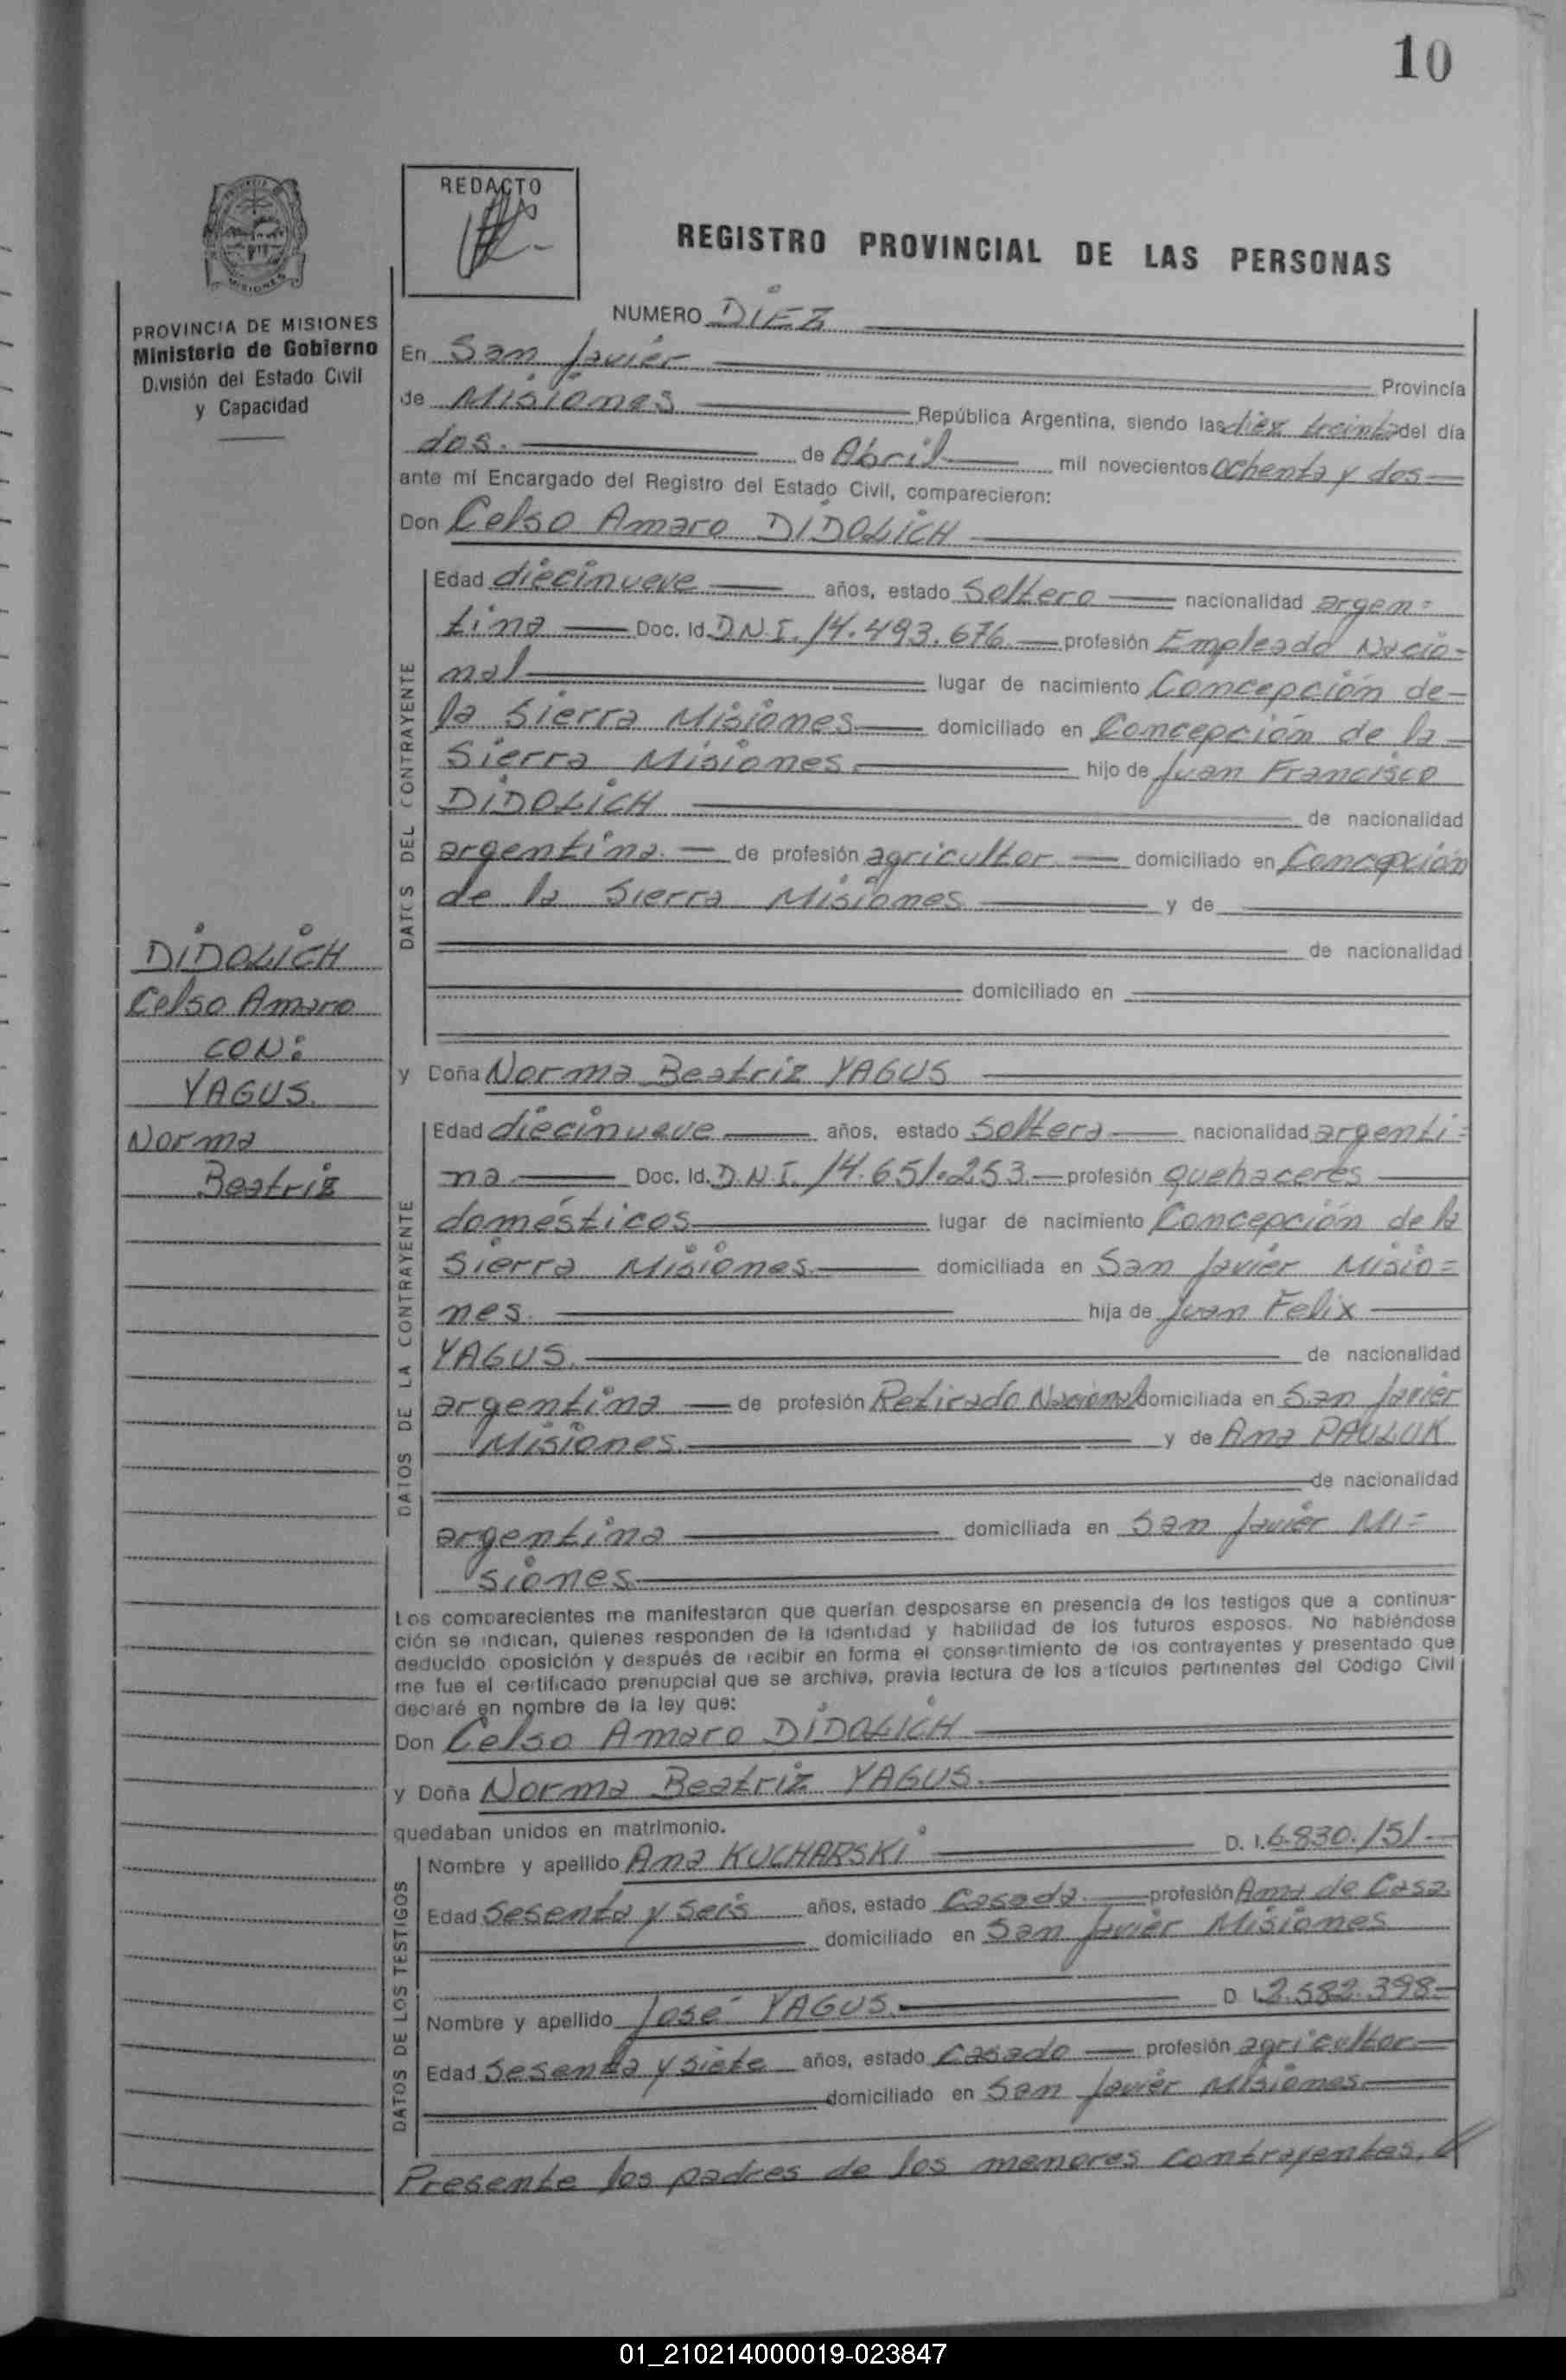 10
REDACTO
REGISTRO PROVINCIAL DE LAS PERSONAS
PROVINCIA DE MISIONES
Ministerio de Gobierno
División del Estado Civil
y Capacidad
NUMERO DIEZ
En San Javier Provincia
de Misiones República Argentina, siendo las diez treinta del día
dos. de Abril mil novecientos ochenta y dos
ante mí Encargado del Registro del Estado Civil, comparecieron:
Don Celso Amaro DIDOLICH
DATOS DEL CONTRAYENTE
Edad diecinueve años, estado Soltero nacionalidad argen=
tina Doc. Id. D.N.I. 14.493.676. profesión Empleado Nacio=
nal lugar de nacimiento Concepción de
la Sierra Misiones domiciliado en Concepción de la
Sierra Misiones. hijo de Juan Francisco
DIDOLICH de nacionalidad
argentina. de profesión agricultor domiciliado en Concepción
de la Sierra Misiones y de
de nacionalidad
domiciliado en
DIDOLICH
Celso Amaro
CON:
YAGUS.
Norma
Beatriz
y Doña Norma Beatriz YAGUS
DATOS DE LA CONTRAYENTE
Edad diecinueve años, estado Soltera nacionalidad argenti=
na Doc. Id. D.N.I. 14.651.253. profesión quehaceres
domésticos lugar de nacimiento Concepción de la
Sierra Misiones. domiciliada en San Javier Misio=
nes. hija de Juan Felix
YAGUS. de nacionalidad
argentina de profesión Retirado Nacional domiciliada en San Javier
Misiones. y de Ana PAULUK
de nacionalidad
argentina domiciliada en San Javier Mi=
siones.
Los comparecientes me manifestaron que querían desposarse en presencia de los testigos que a continua-
ción se indican, quienes responden de la identidad y habilidad de los futuros esposos. No habiéndose
deducido oposición y después de recibir en forma el consentimiento de los contrayentes y presentado que
me fue el certificado prenupcial que se archiva, previa lectura de los artículos pertinentes del Código Civil
declaré en nombre de la ley que:
Don Celso Amaro DIDOLICH
y Doña Norma Beatriz YAGUS.
quedaban unidos en matrimonio.
DATOS DE LOS TESTIGOS
Nombre y apellido Ana KUCHARSKI D. I. 6.830.151.
Edad Sesenta y Seis años, estado Casada. profesión Ama de Casa.
domiciliado en San Javier Misiones
Nombre y apellido José YAGUS. D. I. 2.582.398
Edad Sesenta y siete años, estado Casado profesión agricultor
domiciliado en San Javier Misiones.
Presente los padres de los menores contrayentes.
01_210214000019-023847